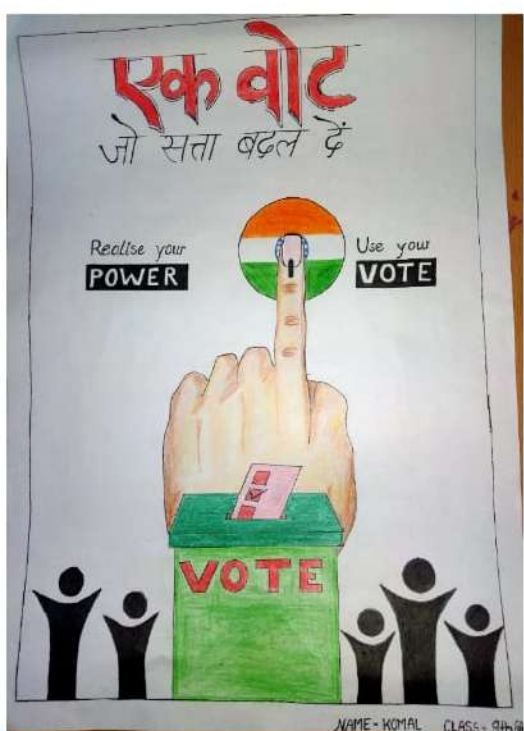 एक वोट
जो सत्ता बदल दें
Realise your
POWER
Use your
VOTE
VOTE
NAME - KOMAL CLASS - 9th